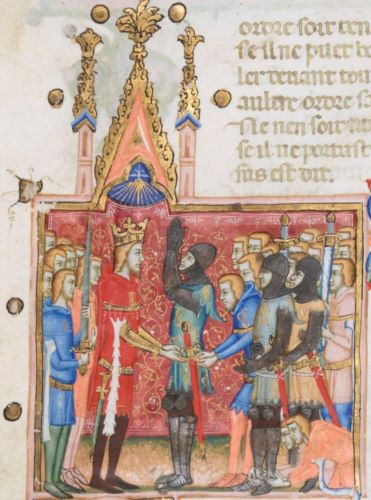 ordre soit ten
se il ne puet bo
ler tenant tou
aultre ordre so
nen soit
se il ne portast
sus est dit.